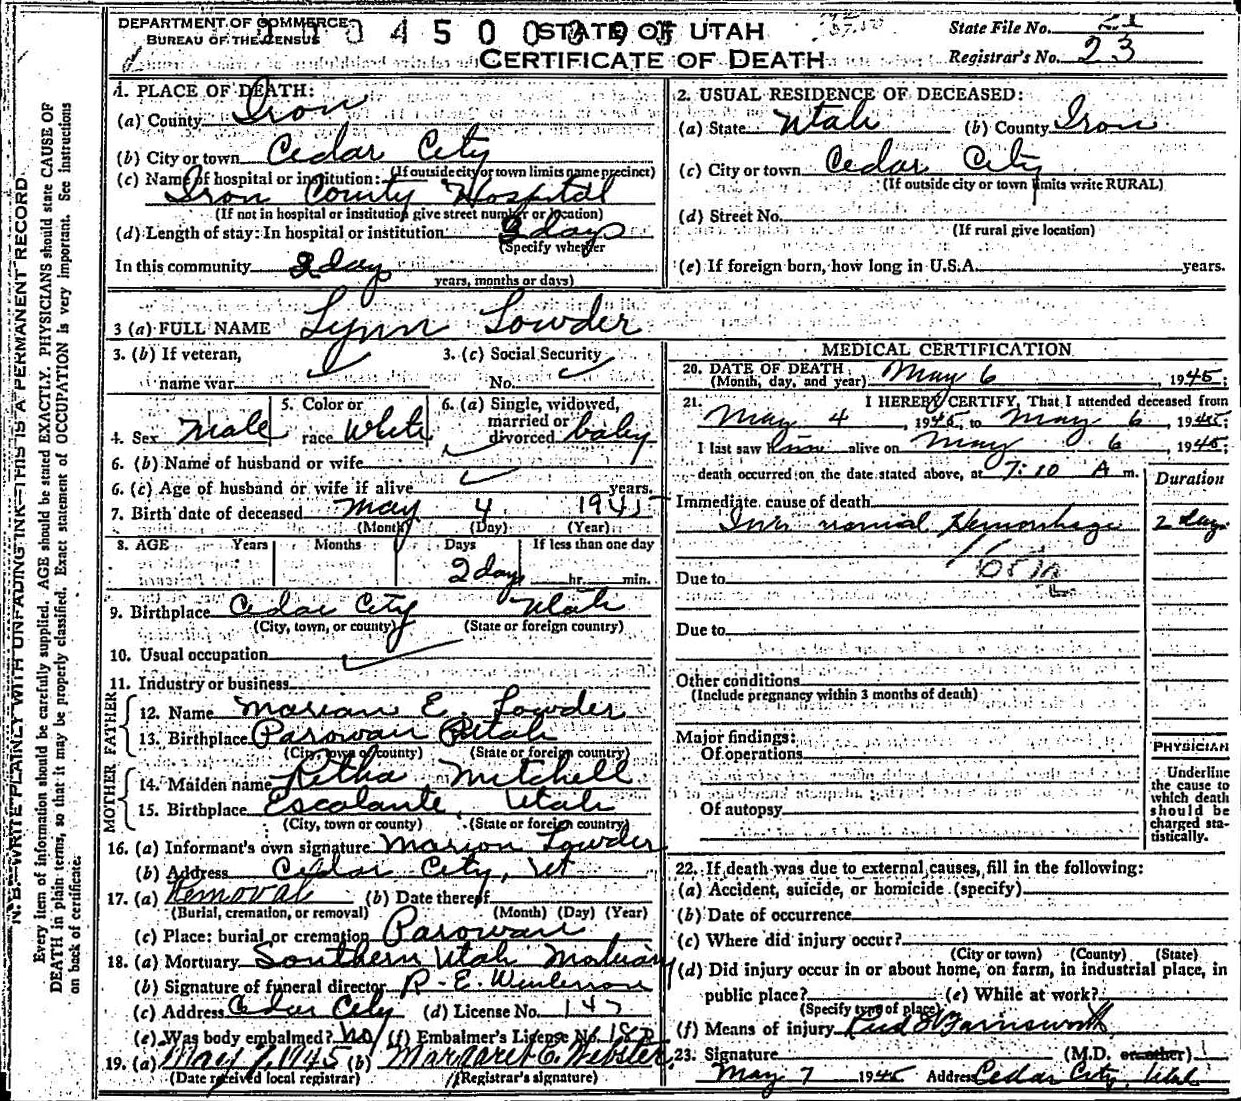 DEPARTMENT OF COMMERCE
BUREAU OF THE CENSUS
STATE OF UTAH
CERTIFICATE OF DEATH
State File No. 21
Registrar's No. 23
1. PLACE OF DEATH:
(a) County Iron
(b) City or town Cedar City
(If outside city or town limits name precinct)
(c) Name of hospital or institution:
Iron County Hospital
(If not in hospital or institution give street number or location)
(d) Length of stay: In hospital or institution 2 days
(Specify whether
In this community 2 days
years, months or days)
2. USUAL RESIDENCE OF DECEASED:
(a) State Utah (b) County Iron
(c) City or town Cedar City
(If outside city or town limits write RURAL)
(d) Street No.
(If rural give location)
(e) If foreign born, how long in U.S.A. years.
3 (a) FULL NAME Lynn Lowder
3. (b) If veteran, name war
3. (c) Social Security No.
4. Sex Male
5. Color or race White
6. (a) Single, widowed, married or divorced baby
6. (b) Name of husband or wife
6. (c) Age of husband or wife if alive years.
7. Birth date of deceased May 4 1945
(Month) (Day) (Year)
8. AGE Years Months Days If less than one day
2 days hr. min.
9. Birthplace Cedar City Utah
(City, town, or county) (State or foreign country)
10. Usual occupation
11. Industry or business
FATHER
12. Name Marion E. Lowder
13. Birthplace Parowan Utah
(City, town or county) (State or foreign country)
MOTHER
14. Maiden name Retha Mitchell
15. Birthplace Escalante, Utah
(City, town or county) (State or foreign country)
16. (a) Informant's own signature Marion Lowder
(b) Address Cedar City, Ut
17. (a) Removal (b) Date thereof
(Burial, cremation, or removal) (Month) (Day) (Year)
(c) Place: burial or cremation Parowan
18. (a) Mortuary Southern Utah Mortuary
(b) Signature of funeral director R. E.
(c) Address Cedar City (d) License No. 147
(e) Was body embalmed? No (f) Embalmer's License No.
19. (a) May 7, 1945 (b) Margaret C. Webster
(Date received local registrar) (Registrar's signature)
MEDICAL CERTIFICATION
20. DATE OF DEATH
(Month, day, and year) May 6, 1945;
21. I HEREBY CERTIFY, That I attended deceased from
May 4, 1945, to May 6, 1945;
I last saw him alive on May 6, 1945;
death occurred on the date stated above, at 7:10 A m.
Duration
Immediate cause of death
Hemorrhage 2 days
Due to
Due to
Other conditions
(Include pregnancy within 3 months of death)
Major findings:
Of operations
Of autopsy
PHYSICIAN
Underline
the cause to
which death
should be
charged sta-
tistically.
22. If death was due to external causes, fill in the following:
(a) Accident, suicide, or homicide (specify)
(b) Date of occurrence
(c) Where did injury occur?
(City or town) (County) (State)
(d) Did injury occur in or about home, on farm, in industrial place, in
public place? (e) While at work?
(Specify type of place)
(f) Means of injury
Farnsworth
23. Signature (M.D. or other)
May 7 1945 Address Cedar City, Utah
N. B.—WRITE PLAINLY WITH UNFADING INK—THIS IS A PERMANENT RECORD
Every item of information should be carefully supplied. AGE should be stated EXACTLY. PHYSICIANS should state CAUSE OF
DEATH in plain terms, so that it may be properly classified. Exact statement of OCCUPATION is very important. See instructions
on back of certificate.